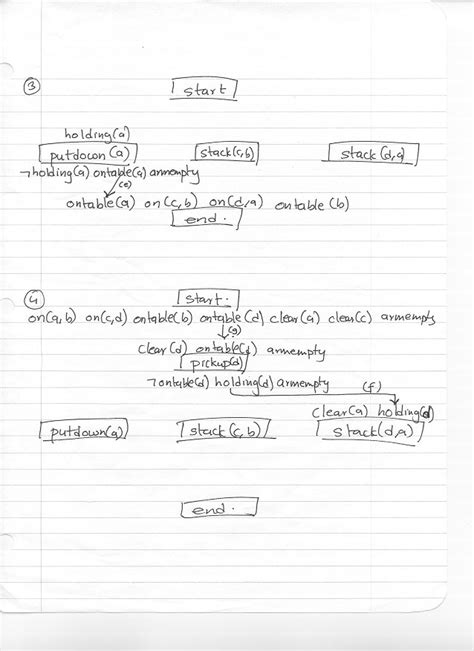 ③ start
holding(a)
putdown(a) stack(c,b) stack(d,a)
¬holding(a) ontable(a) armempty
(e)
ontable(a) on(c,b) on(d,a) ontable(b)
end.
④ start.
on(a,b) on(c,d) ontable(b) ontable(d) clear(a) clear(c) armempty
(g)
clear(d) ontable(d) armempty
pickup(d)
¬ontable(d) holding(d) armempty (f)
clear(a) holding(d)
putdown(a) stack(c,b) stack(d,a)
end.